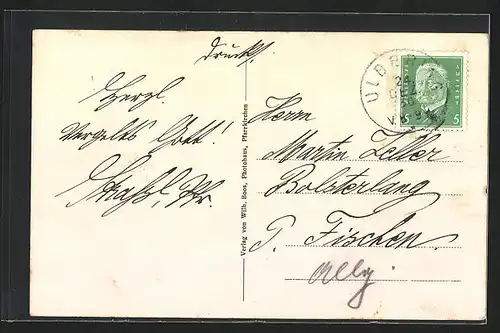 Drucks.
Herzl.
Vergelts Gott!
Pfr.
Verlag von Wilh. Boos, Photohaus, Pfarrkirchen
ULBE
5 5
Herrn
Martin Zeller
Bolsterlang
P. Fischen.
Allg.